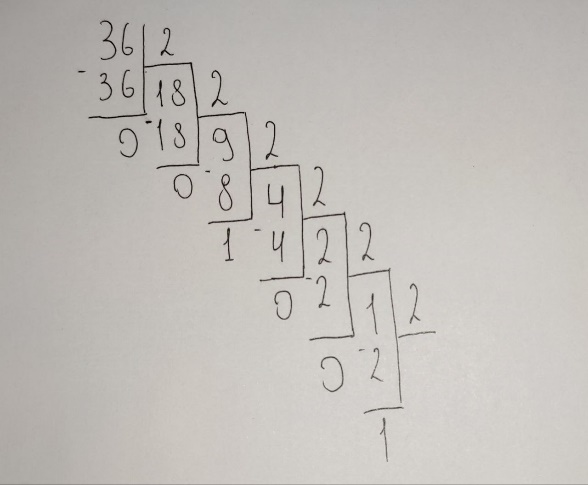 36 2
- 36 18 2
0 - 18 9 2
0 - 8 4 2
1 - 4 2 2
0 - 2 1 2
0 - 2
1